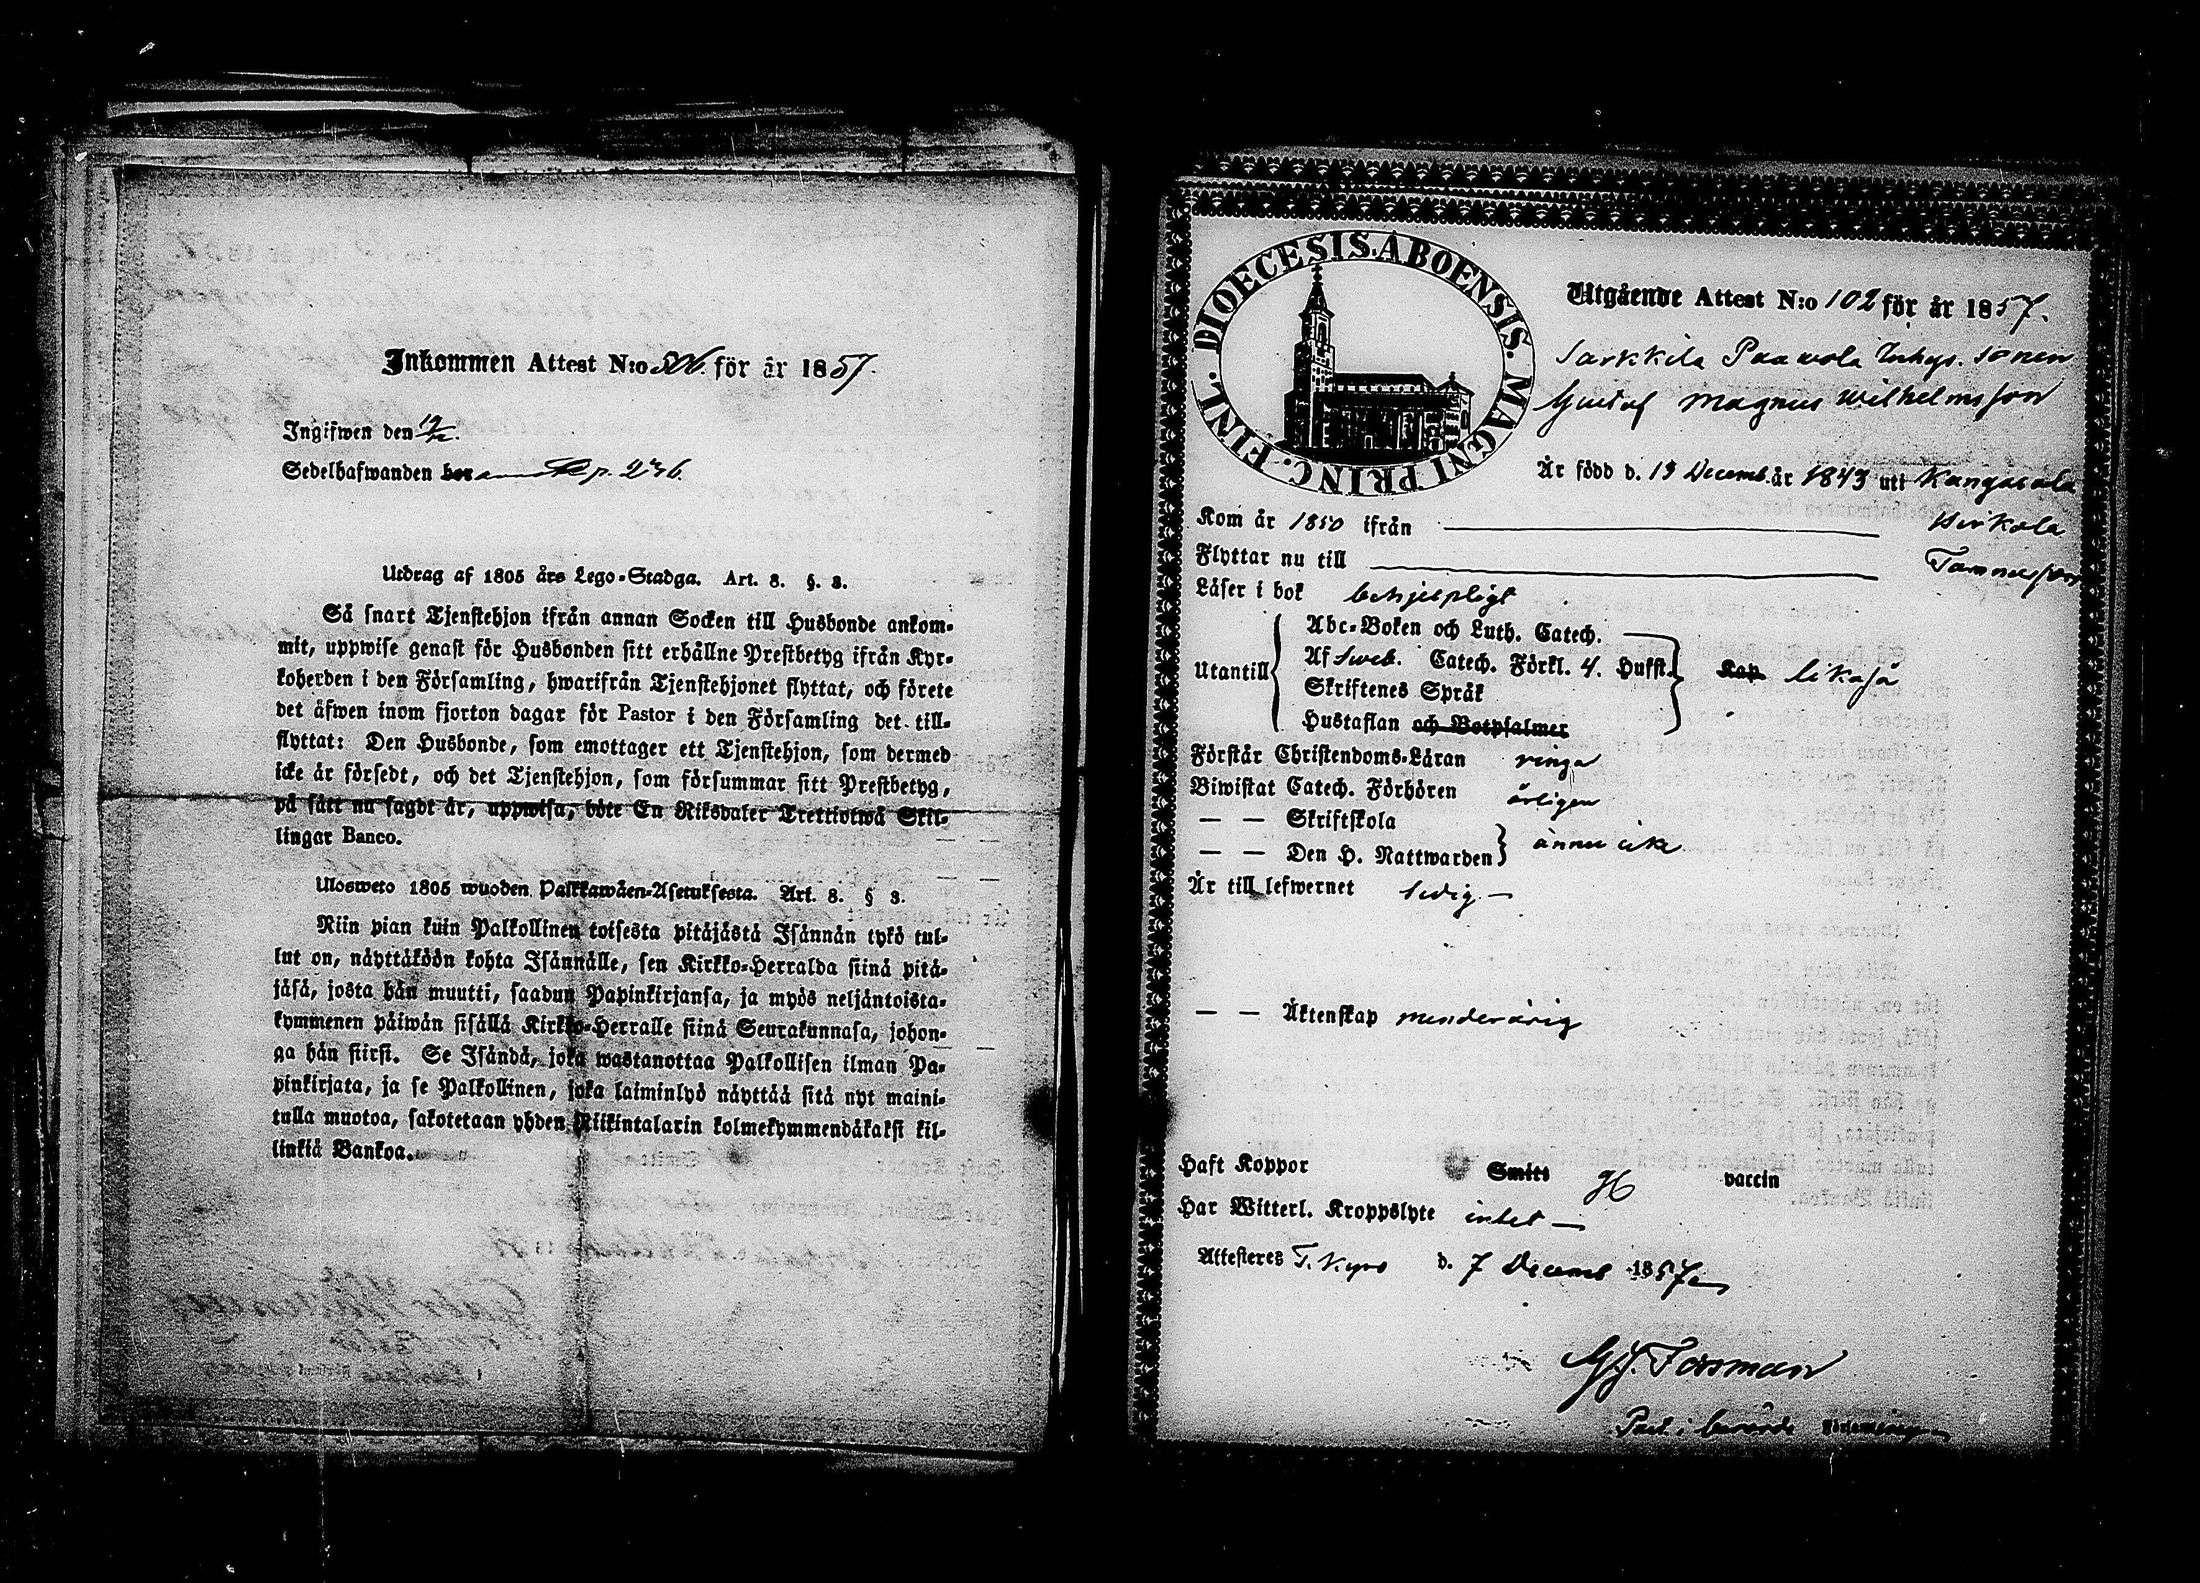 Inkommen Attest N:o 506. för år 1857.
Ingifwen den 19/12.
Sedelhafwanden bor p. 236.
Utdrag af 1805 års Lego-Stadga. Art. 8. §. 3.
Så snart Tjenstehjon ifrån annan Socken till Husbonde ankom-
mit, uppwise genast för Husbonden sitt erhållne Prestbetyg ifrån Kyr-
koherden i den Församling, hwarifrån Tjenstehjonet flyttat, och förete
det äfwen inom fjorton dagar för Pastor i den Församling det till-
flyttat: Den Husbonde, som emottager ett Tjenstehjon, som dermed
icke är försedt, och det Tjenstehjon, som försummar sitt Prestbetyg,
på sätt nu sagdt är, uppwisa, böte En Riksdaler Trettiotwå Skil-
lingar Banco.
Ulosweto 1805 wuoden Palkkawäen-Asetuksesta. Art. 8. § 3.
Niin pian kuin Palkollinen toisesta pitäjästä Isännän tykö tul-
lut on, näyttäköön kohta Isännälle, sen Kirkko-Herralda siinä pitä-
jäsä, josta hän muutti, saadun Papinkirjansa, ja myös neljäntoista-
kymmenen päiwän sisällä Kirkko-Herralle siinä Seurakunnasa, johon-
ga hän siirsi. Se Isändä, joka wastanottaa Palkollisen ilman Pa-
pinkirjata, ja se Palkollinen, joka laiminlyö näyttää sitä nyt maini-
tulla muotoa, sakotetaan yhden Riikintalarin kolmekymmendäkaksi kil-
linkiä Bankoa.
DIOECESIS. ABOENSIS. MAGNI PRINC. FINL.
Utgående Attest N:o 102 för år 1857.
Sarkkila Paawola Inhys. sonen
Gustaf Magnus Wilhelmsson
Är född d. 13 Decemb. år 1843 uti Kangasala
Kom år 1850 ifrån Birkala
Flyttar nu till Tammerfors
Läser i bok behjelpligt
Utantill
Abc-Boken och Luth. Catech.
Af Sweb. Catech. Förkl. 4. Hufst. likaså
Skriftenes Språk
Hustaflan och Botpsalmer
Förstår Christendoms-Läran ringa
Biwistat Catech. Förhören årligen
— — Skriftskola
— — Den H. Nattwarden ännu icke
Är till lefwernet ledig —
— — Äktenskap minderårig
Haft Koppor Smitt vaccin
Har Witterl. Kroppslyte intet —
Attesteres T. Kyro d. 7 Decemb 1857
Forsman
Past. i Församlingen